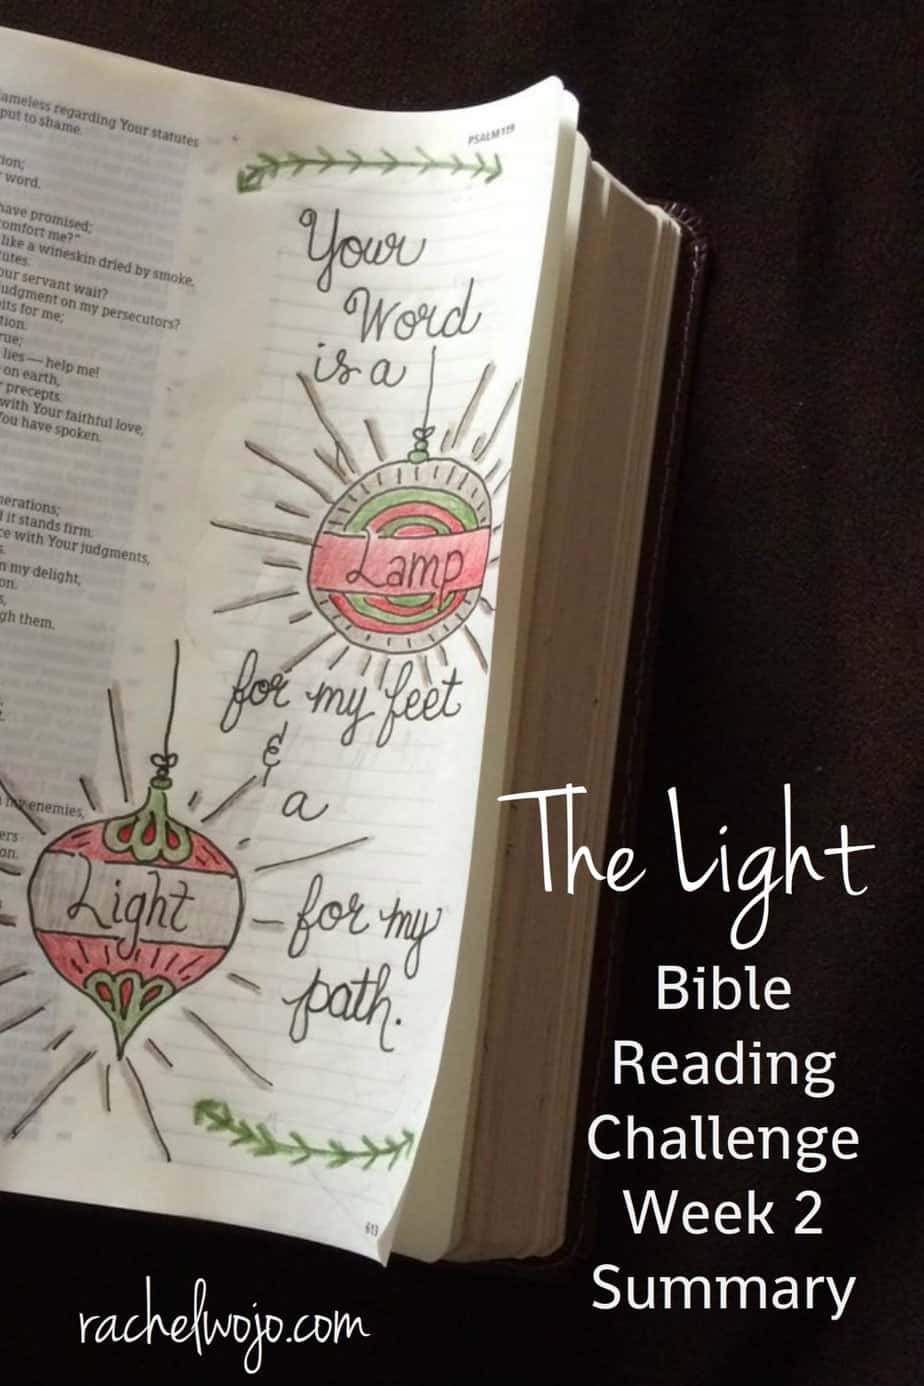 ameless regarding Your statutes
put to shame.
word.
have promised;
comfort me?"
like a wineskin dried by smoke,
our servant wait?
judgment on my persecutors?
its for me;
lies — help me!
on earth,
precepts.
with Your faithful love,
You have spoken.
nerations;
it stands firm.
ce with Your judgments,
n my delight,
gh them.
my enemies,
PSALM 119
Your
Word
is a
Lamp
for my feet
&
a
Light
for my
path.
613
The Light
Bible
Reading
Challenge
Week 2
Summary
rachelwojo.com